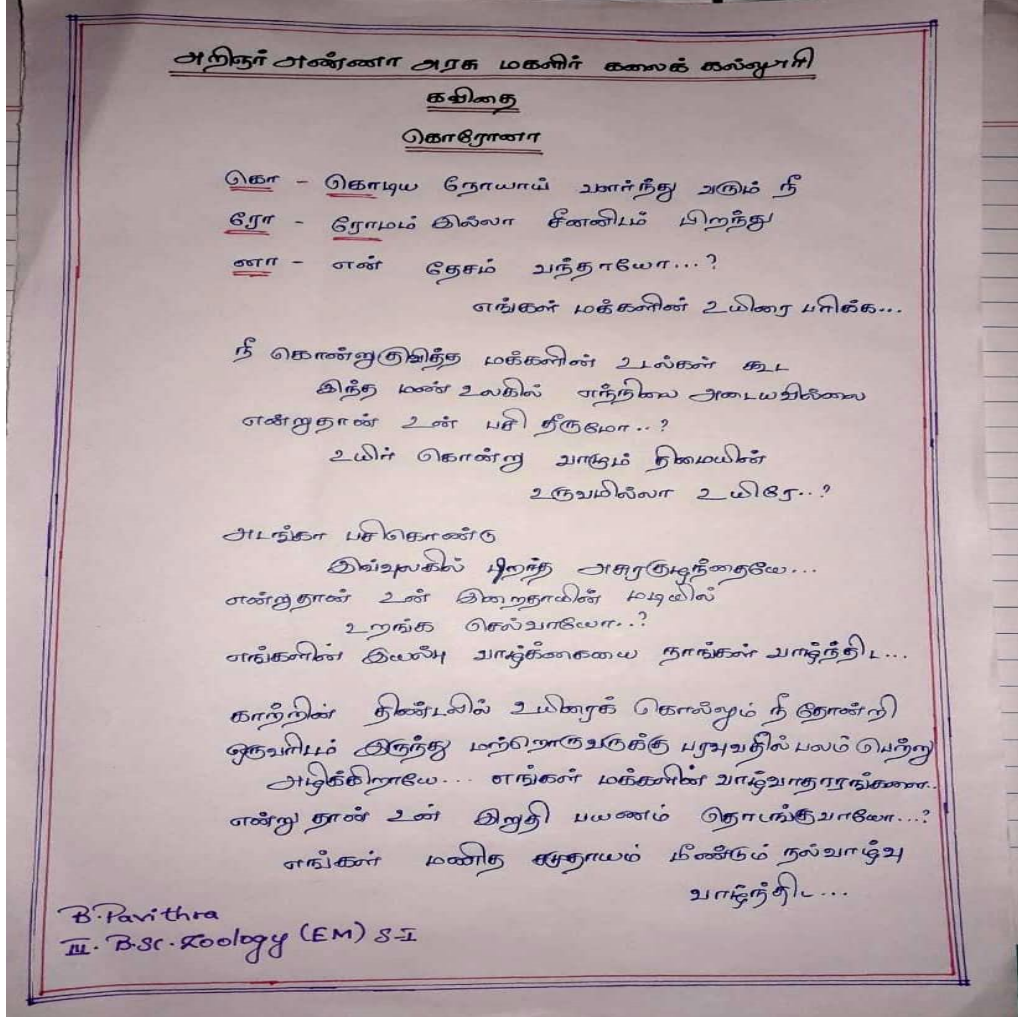 அறிஞர் அண்ணா அரசு மகளிர் கலைக் கல்லூரி
கவிதை
கொரோனா
கொ - கொடிய நோயாய் வளர்ந்து வரும் நீ
ரோ - ரோமம் இல்லா சீனனிடம் பிறந்து
னா - என் தேசம் வந்தாயோ...?
எங்கள் மக்களின் உயிரை பறிக்க...
நீ கொன்றுகுவித்த மக்களின் உடல்கள் கூட
இந்த மண் உலகில் எந்நிலை அடையவில்லை
என்றுதான் உன் பசி தீருமோ..?
உயிர் கொன்று வாழும் திமையின்
உருவமில்லா உயிரே..?
அடங்கா பசிகொண்டு
இவ்வுலகில் பிறந்த அசுரகுழந்தையே...
என்றுதான் உன் இறைதாயின் மடியில்
உறங்க செல்வாயோ..?
எங்களின் இயல்பு வாழ்க்கையை நாங்கள் வாழ்ந்திட...
காற்றின் தீண்டலில் உயிரைக் கொல்லும் நீ தோன்றி
ஒருவரிடம் இருந்து மற்றொருவருக்கு பரவுவதில் பலம் பெற்று
அழிக்கிறாயே... எங்கள் மக்களின் வாழ்வாதாரங்களை..
என்று தான் உன் இறுதி பயணம் தொடங்குவாயோ...?
எங்கள் மணித சமுதாயம் மீண்டும் நல்வாழ்வு
வாழ்ந்திட...
B.Pavithra
III. B.Sc. Zoology (EM) S-I